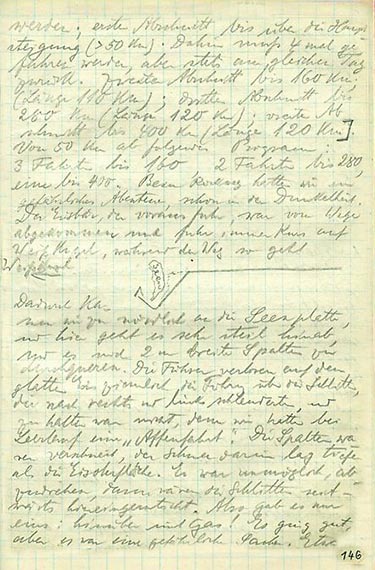 werden; erster Abschnitt bis über die Haupt
steigung (>50 Km). Dahin muss 4 mal ge
fahren werden, aber stets am gleichen Tag
zurück. Zweiter Abschnitt bis 160 Km,
(Länge 110 Km); dritter Abschnitt bis
260 Km (Länge 120 Km); vierter Ab
schnitt bis 400 Km (Länge 120 Km)]
Von 50 Km ab folgendes Programm:
3 Fahrten bis 160 2 Fahrten bis 280,
eine bis 400. Beim Rückweg hatten wir ein
gefährliches Abenteuer, schon in der Dunkelheit.
Der Eisbär, der voraus fuhr, war vom Wege
abgekommen und fuhr immer Kurs auf
während der Weg so geht
Dadurch ka-
men wir zu nördlich an die
wo hier geht es sehr steil hinab,
wo es und 2 m breite Spalten zu
durchqueren. Die Führer verloren auf dem
glatten Eis ziemlich die über die Schlitten,
die nach rechts und links schleuderten, und
zu halten war nicht, denn wir hatten bei
Leerlauf eine "Affenfahrt". Die Spalten wa
ren verschneit, der Schnee darin lag tiefer
als die Eisoberfläche. Es war unmöglich, ab
zudrehen, dann wären die Schlitten seit-
wärts hineingerutscht. Also gab es nur
eins: hinüber und Gas! Es ging gut,
aber es war eine gefährliche Sache. Etwa
146